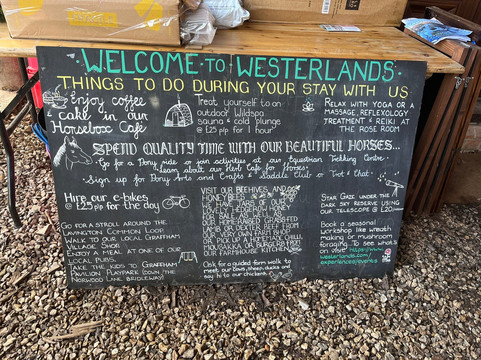 WELCOME TO WESTERLANDS
THINGS TO DO DURING YOUR STAY WITH US
Enjoy coffee
& cake in our
Horsebox Café
Treat yourself to an
outdoor Wildspa
sauna & cold plunge
@ £25 pp for 1 hour
RELAX WITH YOGA OR A
MASSAGE, REFLEXOLOGY
TREATMENT & REIKI IN
THE ROSE ROOM
SPEND QUALITY TIME WITH OUR BEAUTIFUL HORSES...
Go for a Pony ride or join activities at our Equestrian Trekking Centre
Learn about our Herb Café for Horses
Sign up for Pony Arts and Crafts & Saddle Club or Trot & Chat
Hire our e-bikes
@ £25 pp for the day
GO FOR A STROLL AROUND THE
LAVINGTON COMMON LOOP
WALK TO OUR LOCAL GRAFFHAM
VILLAGE SHOP
ENJOY A MEAL AT ONE OF OUR
LOCAL PUBS
TAKE THE KIDS TO GRAFFHAM
PAVILION PLAYPARK (DOWN THE
NORWOOD LANE BRIDLEWAY)
VISIT OUR BEEHIVES AND
HONEYBEES
WE HAVE JARS OF OUR
HONEY
FOR SALE
OUR HOMEGROWN
DEXTER BEEF FROM
OUR FARM SHOP
OR PICK UP A CHILLI,
MOUSSAKA OR BURGERS FROM
OUR FARMHOUSE KITCHEN
Ask for a guided farm walk to
meet our cows, sheep, ducks and
say hi to our chickens
STAR GAZE UNDER THE
DARK SKY RESERVE USING
OUR TELESCOPE @ £20
Book a seasonal
workshop like wreath
making or mushroom
foraging. To see what's
on visit https://www.
westerlands.com/
experiences/events